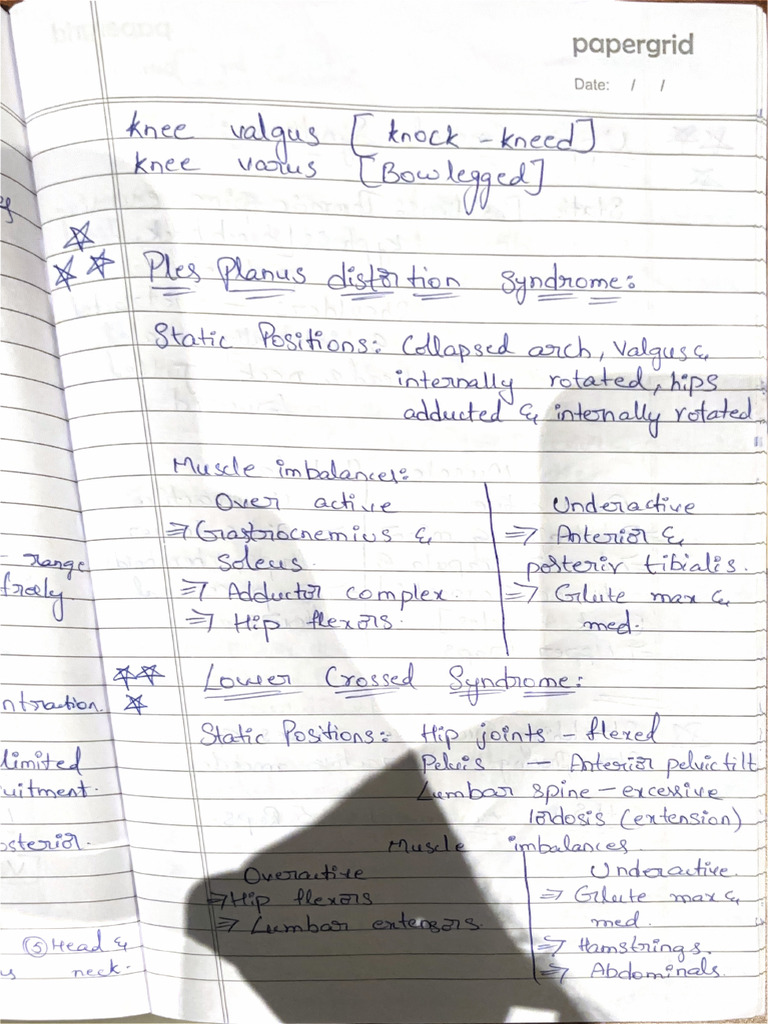 papergrid
Date: / /
knee valgus [knock-kneed]
knee varus [Bowlegged]
Ples Planus distortion Syndrome:
Static Positions: Collapsed arch, Valgus &
internally rotated, hips
adducted & internally rotated
Muscle imbalances:
Over active
⇒ Grastriocnemius &
Soleus.
⇒ Adductor complex.
⇒ Hip flexors.
Underactive
⇒ Anterior &
posterir tibialis.
⇒ Glute max &
med.
Lower Crossed Syndrome:
Static Positions: Hip joints - flexed
Pelvis - Anterior pelvic tilt
Lumbar spine - excessive
lordosis (extension)
Muscle imbalances.
Overactive
⇒ Hip flexors
⇒ Lumbar extensors.
Underactive.
⇒ Glute max &
med.
⇒ Hamstrings.
⇒ Abdominals.
- range
freely.
ntraction.
limited
uitment.
osterior.
⑤ Head &
neck.